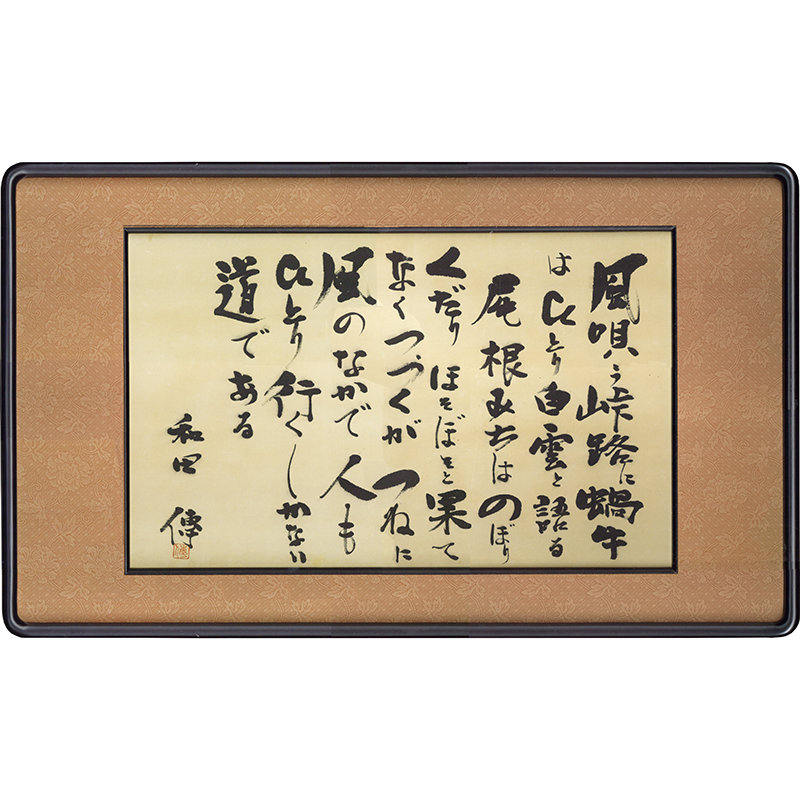 風唄う峠路に蝸牛
はひとり白雲と語る
尾根みちはのぼり
くだりほそぼそと果て
なくつづくがつねに
風のなかで人も
ひとり行くしかない
道である
和田 傳